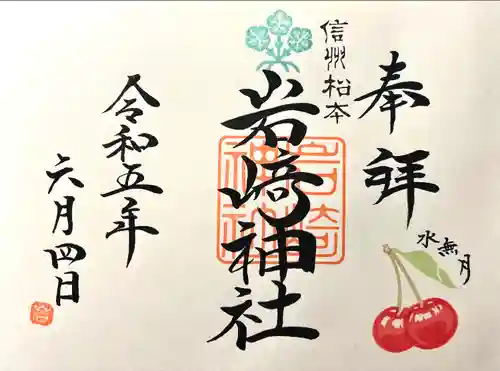 奉拝
水無月
信州松本
岩﨑神社
令和五年
六月四日